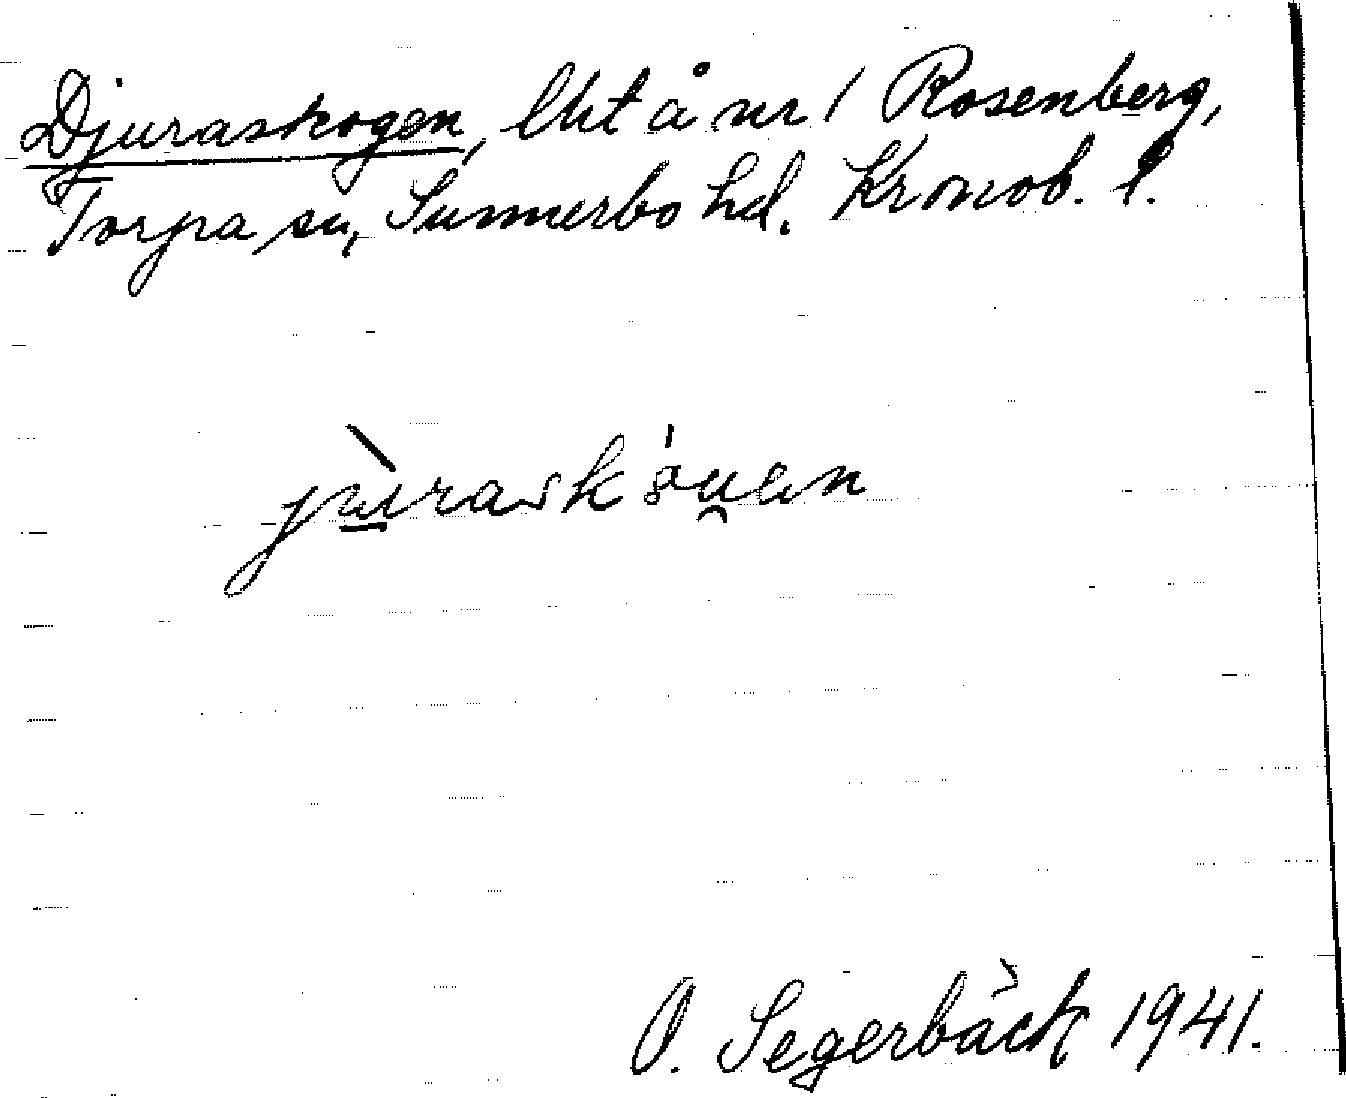 Djuraskogen, lht å nr 1 Rosenberg,
Torpa sn, Sunnerbo hd. Kronob. l.
jùraskóu̯en
O. Segerbäck 1941.